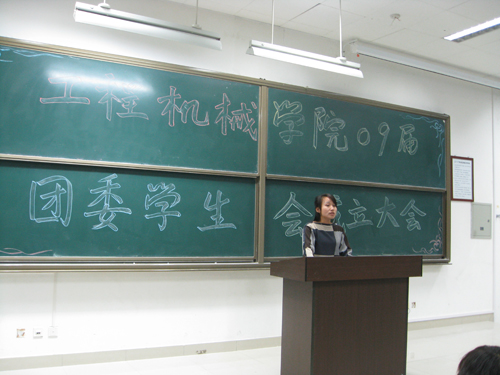 工程机械学院09届
团委学生会成立大会